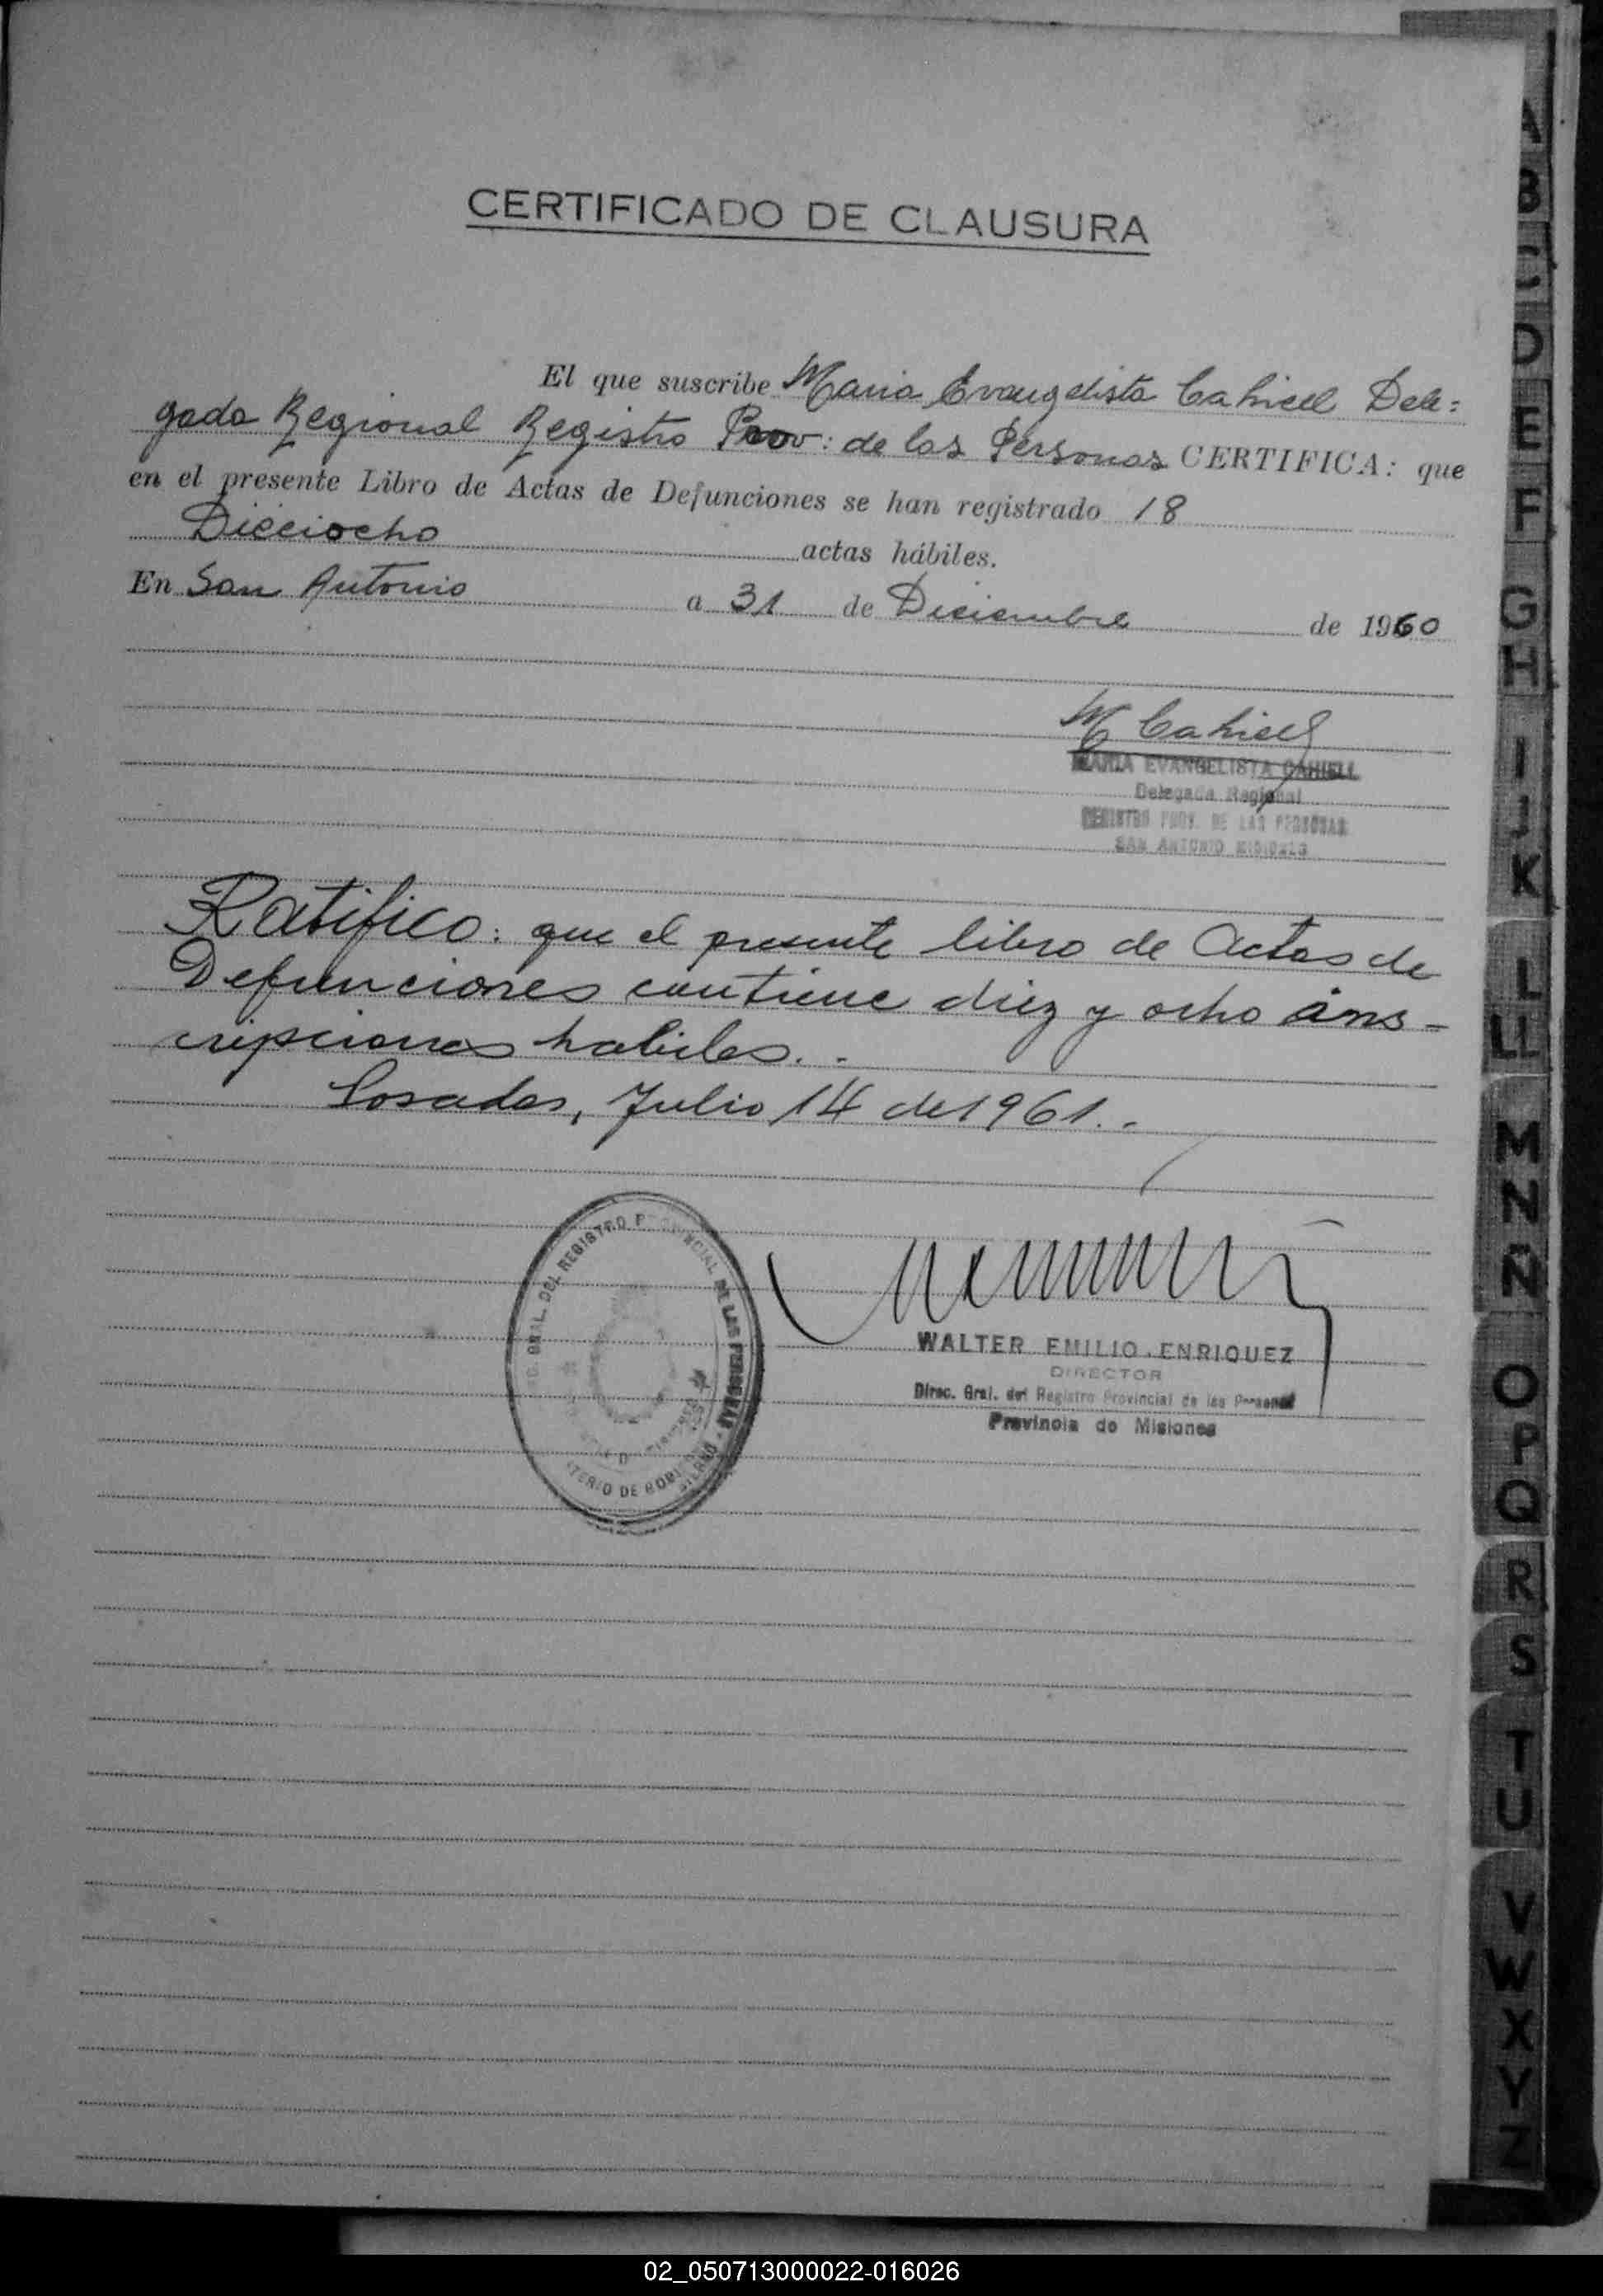 CERTIFICADO DE CLAUSURA
El que suscribe Maria Evangelista Cahiell Dele=
gada Regional Registro Prov: de las Personas CERTIFICA: que
en el presente Libro de Actas de Defunciones se han registrado 18
Dieciocho actas hábiles.
En San Antonio a 31 de Diciembre de 1960
M Cahiell
MARIA EVANGELISTA CAHIELL
Delegada Regional
REGISTRO PROV. DE LAS PERSONAS
SAN ANTONIO MISIONES
Ratifico: que el presente libro de Actas de
Defunciones contiene diez y ocho ins-
cripciones habiles..
Posadas, Julio 14 de 1961..
GRAL. DEL REGISTRO PROVINCIAL DE LAS PERSONAS
WALTER EMILIO ENRIQUEZ
DIRECTOR
Direc. Gral. del Registro Provincial de las Personas
Provincia de Misiones
A
B
C
D
E
F
G
H
I
J
K
L
LL
M
N
Ñ
O
P
Q
R
S
T
U
V
W
X
Y
Z
02_050713000022-016026